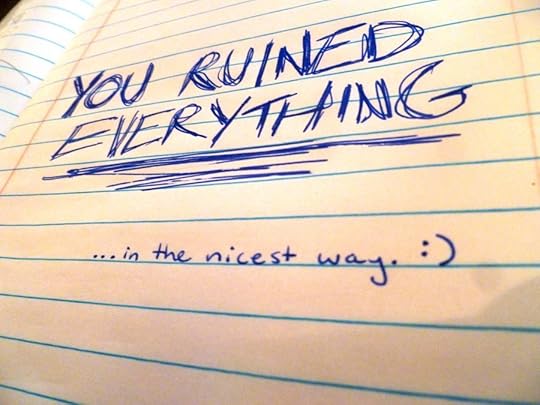 YOU RUINED
EVERYTHING
...in the nicest way. :)